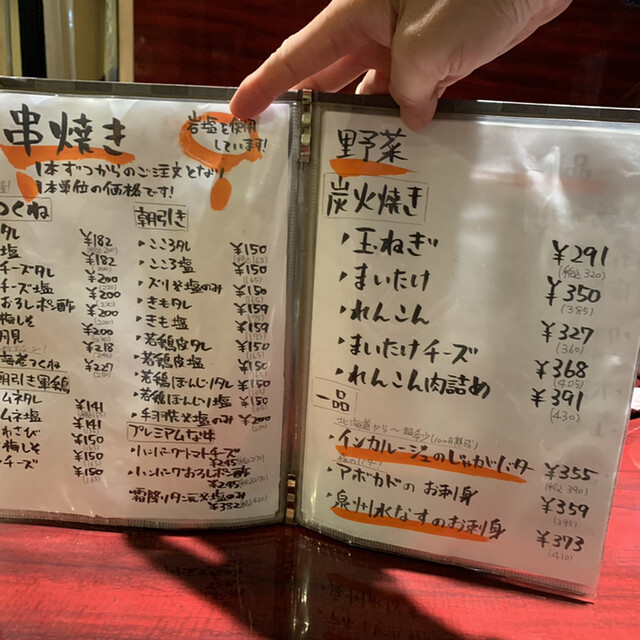 串焼き
岩塩を使用
しています!
1本ずつからのご注文となり
1本単位の価格です!
つくね
タレ ¥182
塩 ¥182
チーズタレ ¥200
チーズ塩 ¥200
おろしポン酢 ¥200
梅しそ ¥200
月見 ¥218
海老つくね ¥227
朝引き里鶏
ムネタレ ¥141
ムネ塩 ¥141
わさび ¥150
梅しそ ¥150
チーズ ¥150
朝引き
こころタレ ¥150
こころ塩 ¥150
ズリ塩のみ ¥150
きもタレ ¥159
きも塩 ¥159
若鶏皮タレ ¥150
若鶏皮塩 ¥150
若鶏ぼんじりタレ ¥150
若鶏ぼんじり塩 ¥150
塩のみ
プレミアムな串
ハンバーグトマトチーズ
¥245
ハンバーグおろしポン酢
¥245
霜降りタン塩のみ
¥382 (税込420)
野菜
炭火焼き
・玉ねぎ ¥291
(税込320)
・まいたけ ¥350
(385)
・れんこん ¥327
(360)
・まいたけチーズ ¥368
(405)
・れんこん肉詰め ¥391
(430)
一品
北海道から〜
・インカルージュのじゃがバター ¥355
(税込390)
・アボカドのお刺身 ¥359
(395)
・泉州水なすのお刺身 ¥373
(410)